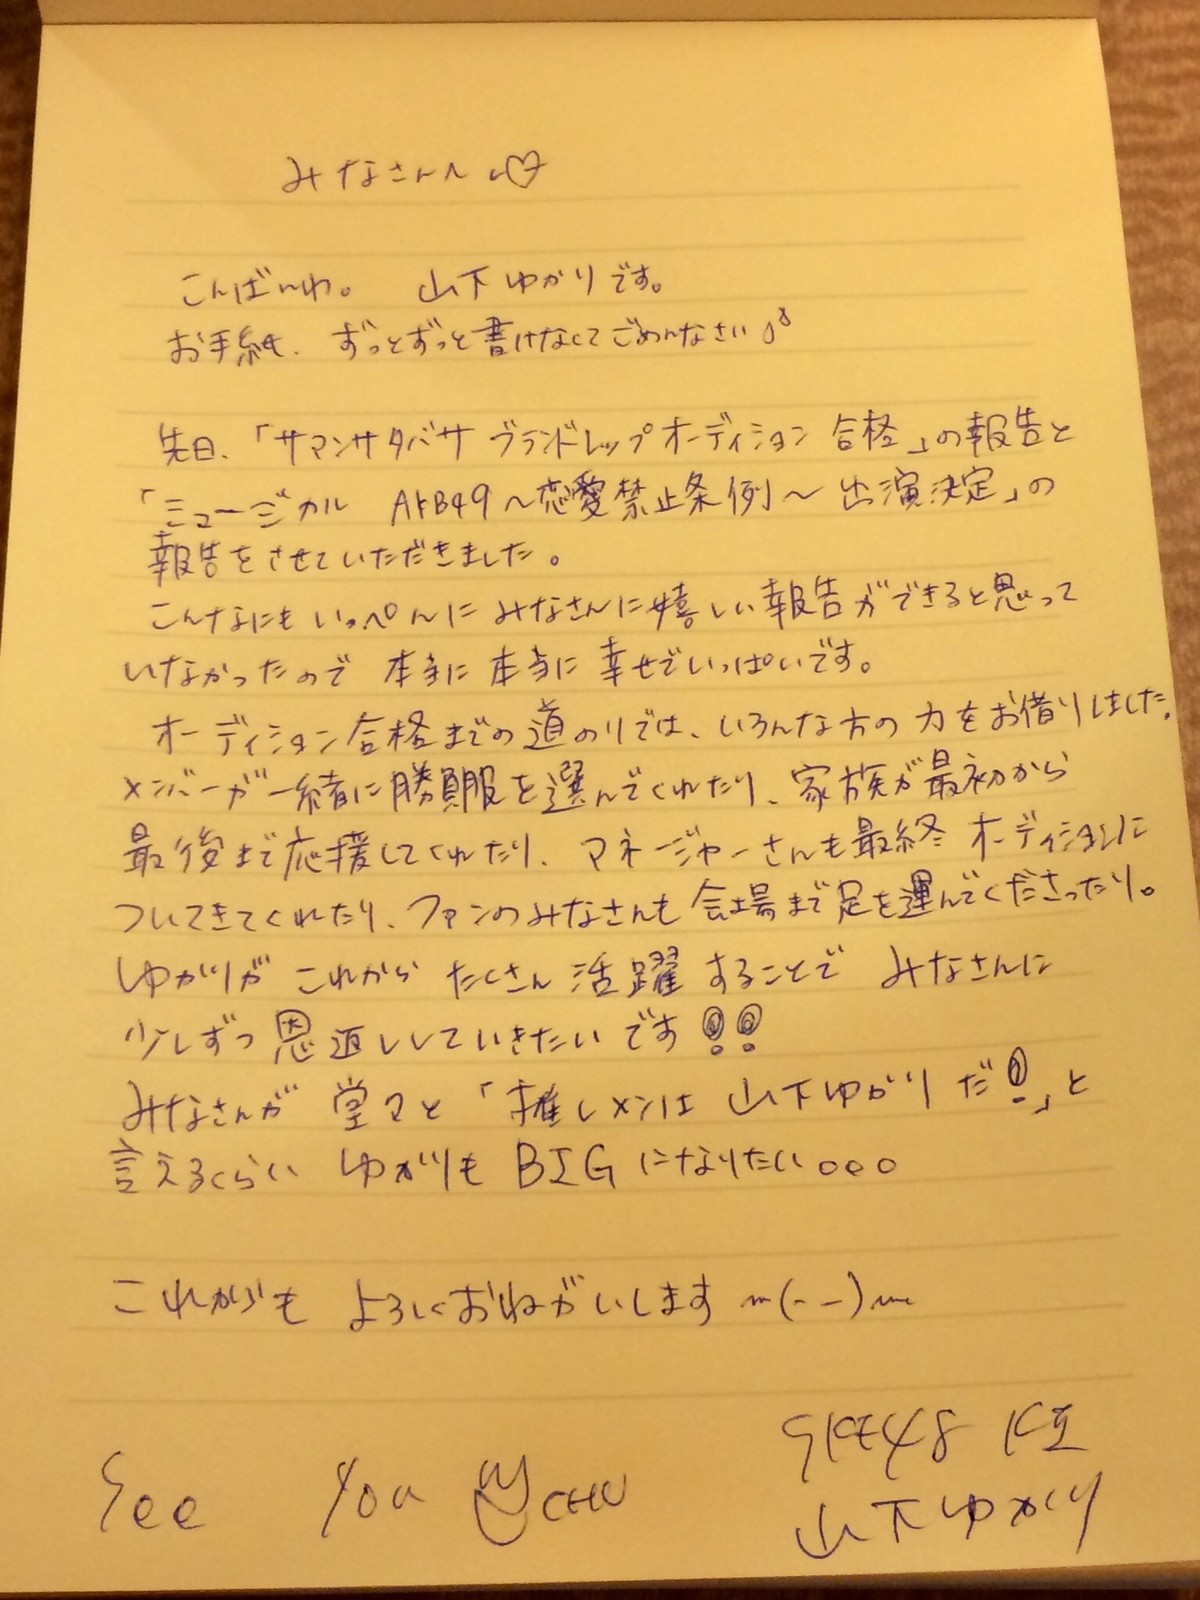 みなさんへ♡
こんばんわ。 山下ゆかりです。
お手紙、ずっとずっと書けなくてごめんなさい
先日、「サマンサタバサ ブランドレップオーディション 合格」の報告と
「ミュージカル AKB49〜恋愛禁止条例〜 出演決定」の
報告をさせていただきました。
こんなにもいっぺんに みなさんに嬉しい報告ができると思って
いなかったので 本当に 本当に 幸せでいっぱいです。
オーディション合格までの道のりでは、いろんな方の力をお借りしました。
メンバーが一緒に勝負服を選んでくれたり、家族が最初から
最後まで応援してくれたり、マネージャーさんも最終オーディションに
ついてきてくれたり、ファンのみなさんも会場まで足を運んでくださったり。
ゆかりが これから たくさん 活躍することで みなさんに
少しずつ 恩返ししていきたいです!!
みなさんが 堂々と 「推しメンは 山下ゆかりだ!」と
言えるくらい ゆかりも BIGになりたい。。。
これからも よろしくおねがいします m(--)m
See You CHU
SKE48 KⅡ
山下ゆかり